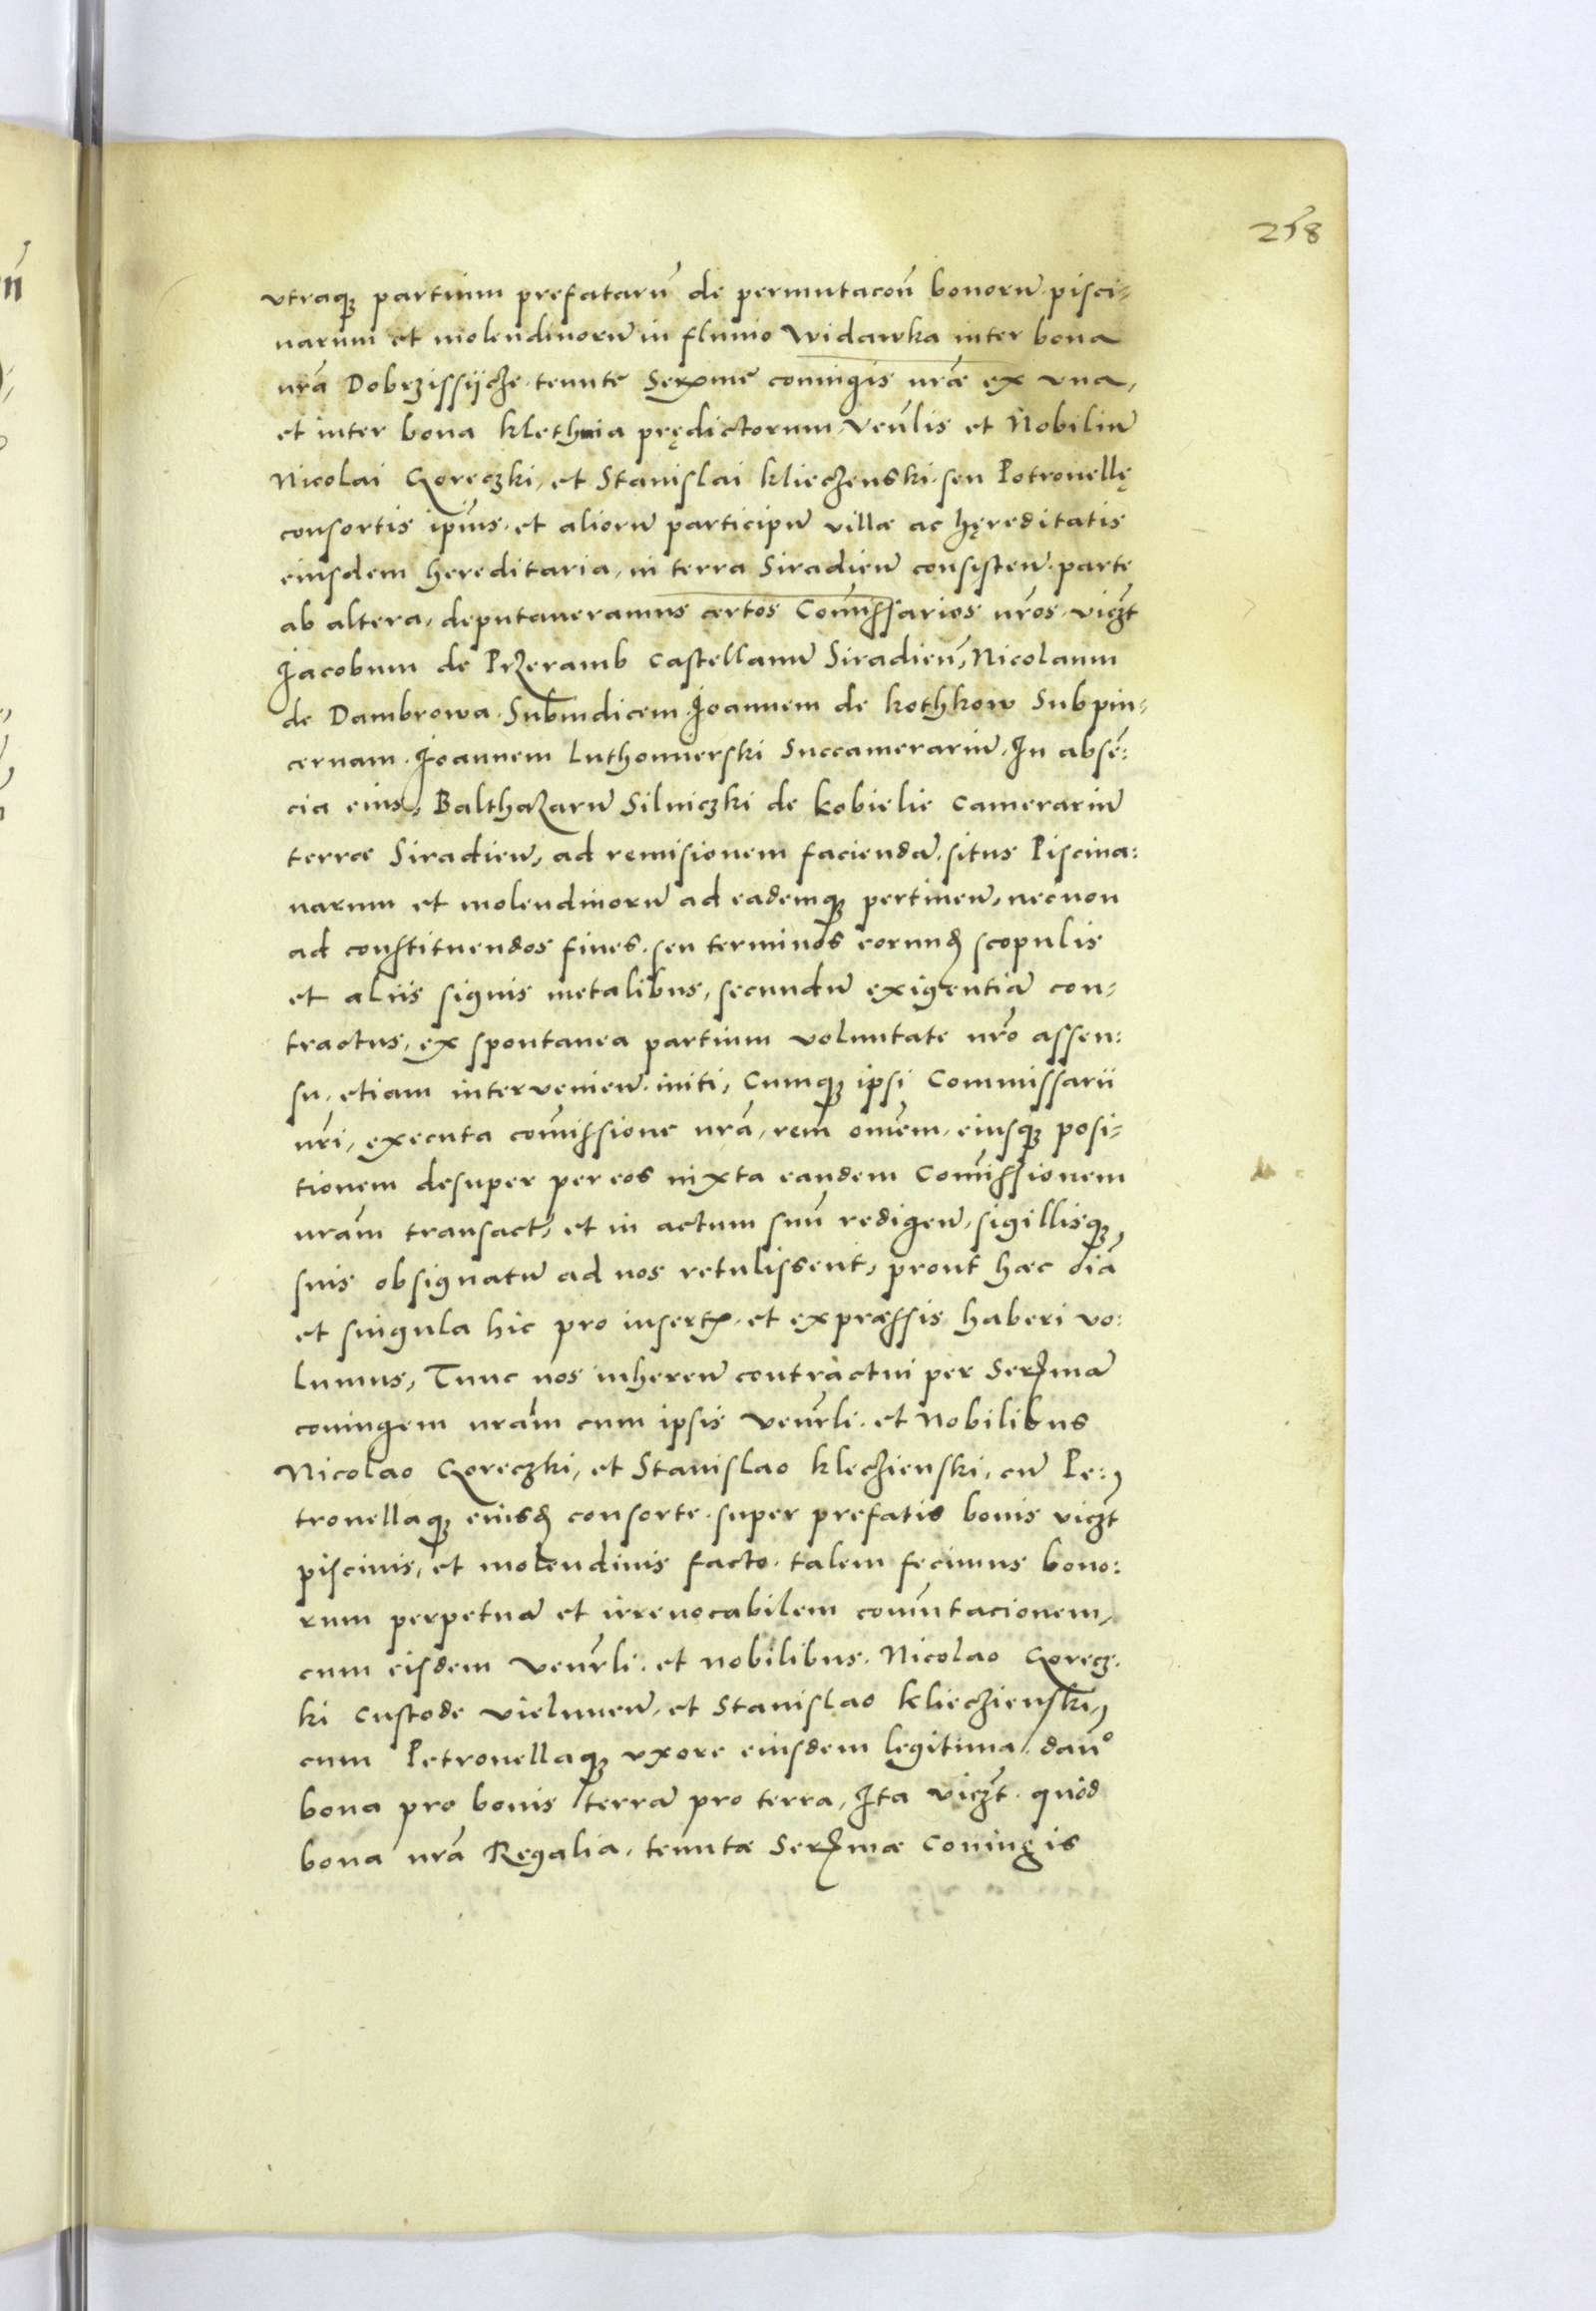 258
vtraqꝫ partium prefatarũ de permutacoñ bonorũ pisci-
narum et molendinorũ in fluuio Widawka inter bona
nrã Dobrzissijcze tenutẽ Serx̃me coniugis nrãe ex vna,
et inter bona klethnia prędictorum Veñlis et Nobiliũ
Nicolai Goreczki, et Stanislai kliechenski seu Potronellę
consortis ip̃ius, et aliorũ participũ villæ ac hęreditatis
eiusdem hereditaria, in terra Siradieñ consisteñ parte
ab altera, deputaueramus certos Com̃issarios nr̃os, vicz̃t
Jacobum de Przeramb Castellanũ Siradieñ, Nicolaum
de Dambrowa Subiudicem Joannem de kothkow Subpin-
cernam Joannem Luthomierski Succamerariũ, In absẽ:
cia eius, Balthazarũ Silniczki de kobielie Camerariũ
terræ Siradieñ, ad remisionem faciendã situs Piscina:
narum et molendinorũ ad eademqꝫ pertineñ, necnon
ad constituendos fines, seu terminos eorund̃ scopulis
et aliis signis metalibus, secundũ exigentiã con-
tractus, ex spontanea partium voluntate nr̃o assen:
su etiam interuenieñ initi, Cumqꝫ ipsi Commissarii
nr̃i, executa com̃issione nrã, rem̃ om̃em, eiusqꝫ posi-
tionem desuper per eos iuxta eandem Com̃issionem
nrãm transact̃, et in actum suũ redigeñ, sigillisqꝫ
suis obsignatũ ad nos retulissent, prout hæc oĩa
et singula hic pro insertꝭ et expræssis haberi vo:
lumus, Tunc nos inhereñ contractui per Serx̃mã
coniugem nrãm cum ipsis Venrl̃i et Nobilibus
Nicolao Goreczki, et Stanislao klechienski, cũ Pe:
tronellaqꝫ eiusd̃ consorte super prefatis bonis vicz̃t
piscinis, et molendinis facto talem fecimus bono:
rum perpetuã et irreuocabilem com̃utacionem,
cum eisdem Venrl̃i et nobilibus Nicolao Gorecz-
ki Custode Vieluneñ, et Stanislao kliechienski,
cum Petronellaqꝫ vxore eiusdem legitima, dañº
bona pro bonis terrã pro terra, Ita vicz̃t quòd
bona nrã Regalia, tenutæ Serx̃mæ Coniugis